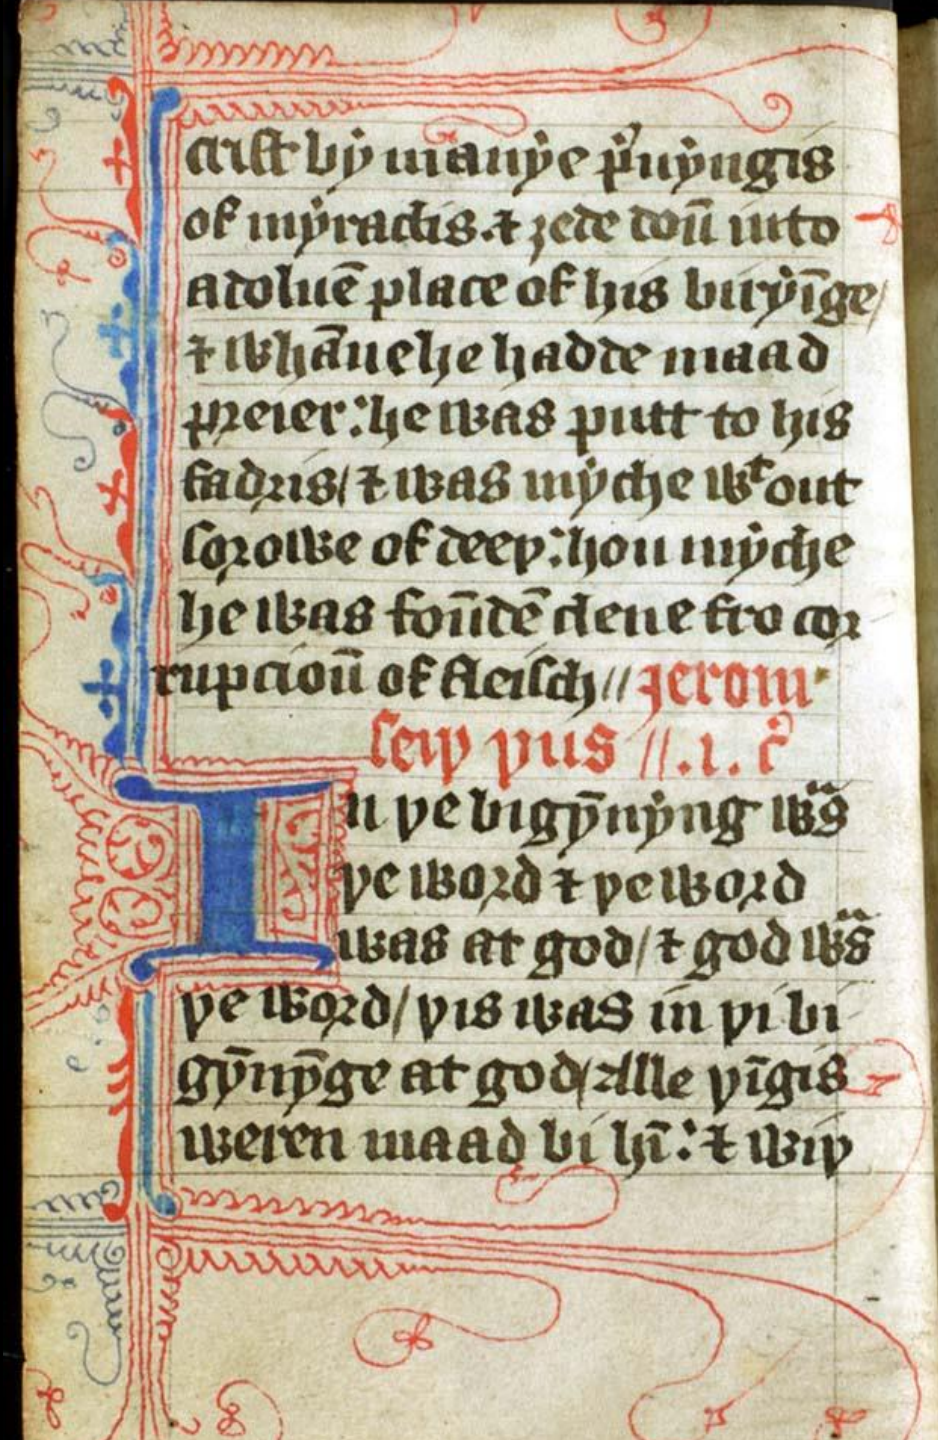 crist bẏ manẏe p̉uẏngis
of mẏraclis. ⁊ ȝede doū into
a doluē place of his birẏīge /
⁊ whāne he hadde maad
preier : he was putt to his
fadris / ⁊ was mẏche wᵗout
sorowe of deeþ : hou mẏche
he was foūdē clene fro cor
rupcioū of fleisch // Jerom
seiþ þus // .i. c̉
In þe bigẏ̄nẏng wᵃs
þe word ⁊ þe word
was at god / ⁊ god wᵃs
þe word / þis was in þi bi
gẏ̄nẏ̄ge at god / Alle þīgis
weren maad bi hī : ⁊ wiþ